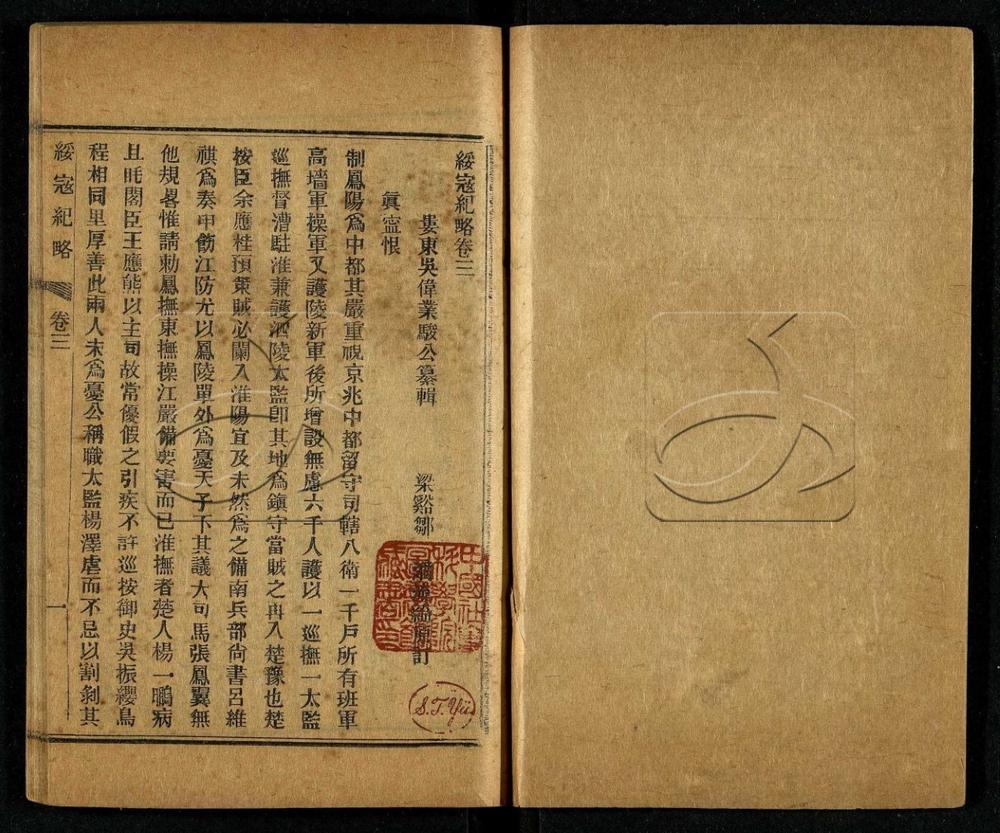 綏寇紀略卷三
婁東吳偉業駿公纂輯 梁谿鄒 訂
眞寍恨
制鳳陽爲中都其嚴重視京兆中都留守司轄八衛一千戸所有班軍
高墻軍操軍又護陵新軍後所增設無慮六千人護以一巡撫一太監
巡撫督漕駐淮兼護泗陵太監卽其地爲鎭守當賊之再入楚豫也楚
按臣余應桂預策賊必闌入淮陽宜及未然爲之備南兵部尙書呂維
祺爲奏申飭江防尤以鳳陵單外爲憂天子下其議大司馬張鳳翼無
他規畧惟請勅鳳撫東撫操江嚴備要害而已淮撫者楚人楊一鵬病
且眊閣臣王應熊以主司故常優假之引疾不許巡按御史吳振纓烏
程相同里厚善此兩人未爲憂公稱職太監楊澤虐而不忌以割剝其
綏寇紀略 卷三 一
S.T.Yü